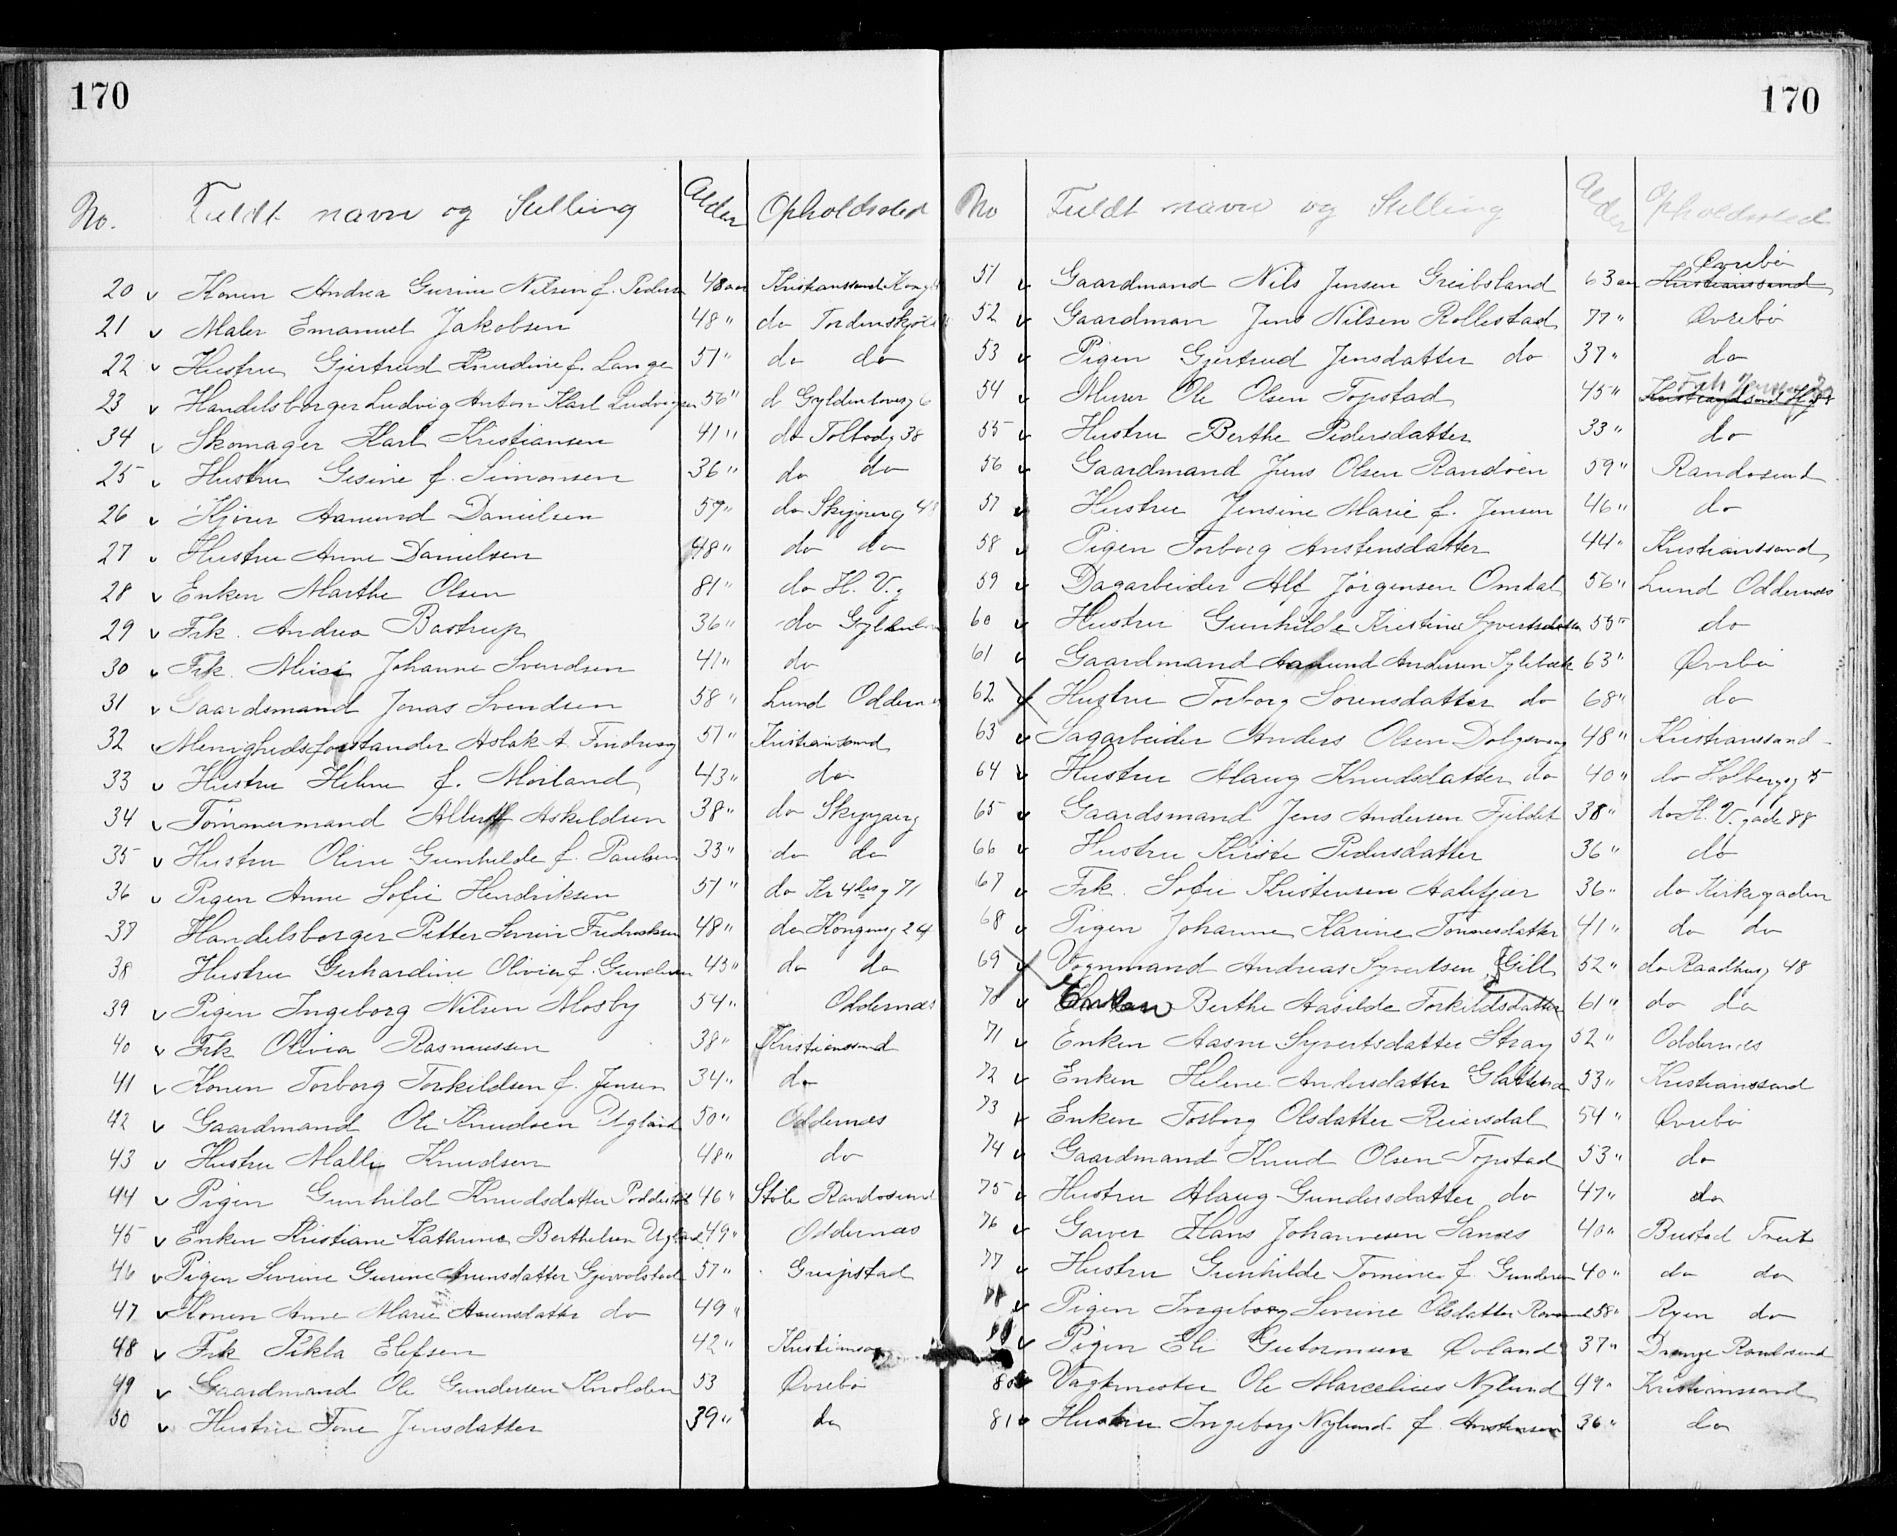 170
No. Fuldt navn og Stilling Alder Opholdssted
20 v Konen Andrea Gurine Nilsen f. Peders 48 aar Kristianssand
21 v Maler Emanuel Jakobsen 48 " do Tordenskjold
22 v Hustru Gjertrud Knudine f. Lange 51 " do do
23 v Handelsborger Ludvig Anton Karl Ludvigsen 56 " d Gyldenlovesg 6
34 v Skomager Karl Kristiansen 41 " do Tolbodg 38
25 v Hustru Gesine f. Simonsen 36 " do do
26 v Aanund Danielsen 57 " do Skipperg
27 v Hustru Anne Danielsen 48 " do do
28 v Enken Marthe Olsen 81 " do H. V. g
29 v Frk. Andrea Bastrup 36 " do Gyldenlov
30 v Frk. Johanne Svendsen 41 " do
31 v Gaardsmand Jonas Svendsen 58 " Lund Oddernes
32 v Menighedsforstander Aslak A. 51 " Kristianssand
33 v Hustru Helene f. Moiland 43 " do
34 v Tømmermand Albert Askildsen 38 " do Skipperg
35 v Hustru Oline Gunhilde f. Paulsen 33 " do do
36 v Pigen Anne Sofie Hendriksen 51 " do Kr 4des g 71
37 Handelsborger Petter Severin Fredriksen 48 " do Kongensg 24
38 Hustru Gerhardine Olivia f. Gundersen 43 " do do
39 v Pigen Ingeborg Nilsen Mosby 54 " Oddernes
40 v Frk Olivia Rasmussen 38 " Kristianssand
41 v Konen Torborg Torkildsen f. Jensen 34 " do
42 v Gaardmand Ole Knudsen Ugland 50 " Oddernes
43 v Hustru Malli Knudsen 48 " do
44 v Pigen Gunhild Knudsdatter 46 " Støle Randosund
45 v Enken Kristiane Kathrine Berthelsen Ugland 49 " Oddernes
46 v Pigen Serine Gurine Aanensdatter 57 " Greipstad
47 v Konen Anne Marie Aanensdatter do 49 "
48 v Frk Tekla Elefsen 42 " Kristianssand
49 v Gaardmand Ole Gundersen Knolden 53 Øvrebø
50 v Hustru Tone Jensdatter 39 " do
170
No Fuldt navn og Stilling Alder Opholdssted
Øvrebø
51 v Gaardmand Nils Jensen Greibsland 63 aar Kristianssand
52 v Gaardman Jens Nilsen Rollestad 77 " Øvrebø
53 v Pigen Gjertrud Jensdatter do 37 " do
54 v Murer Ole Olsen Topstad 45 "
55 v Hustru Berthe Pedersdatter 33 " do
56 v Gaardmand Jens Olsen Randøen 59 " Randosund
57 v Hustru Jensine Marie f. Jensen 46 " do
58 v Pigen Torborg Anstensdatter 44 " Kristianssand
59 v Dagarbeider Alf Jørgensen Omdal 56 " Lund Oddernes
60 v Hustru Gunhilde Kristine Syvertsdatter 55 " do
61 v Gaardmand Aanund Andersen 63 " Øvrebø
62 v Hustru Torborg Sorensdatter do 68 " do
63 v Sagarbeider Anders Olsen 48 " Kristianssand
64 v Hustru Alaug Knudsdatter do 40 " do Holbergsg 5
65 v Gaardsmand Jens Andersen Fjeldet 38 " do H. V. gade 88
66 v Hustru Kirste Pedersdatter 36 " do
67 v Frk. Sofie Kristensen 36 " do Kirkegaden
68 v Pigen Johanne Karine Tønnesdatter 41 " do do
69 v Vognmand Andreas Syvertsen, Gill 52 " do Raadhusg 48
70 v Enken Berthe Aasilde Torkildsdatter 61 " do do
71 v Enken Aasne Syvertsdatter Stray 52 " Oddernes
72 v Enken Helene Andersdatter 53 " Kristianssand
73 v Enken Torborg Olsdatter Reiersdal 54 " Øvrebø
74 v Gaardmand Knud Olsen Topstad 53 " do
75 v Hustru Alaug Gundersdatter do 47 " do
76 v Garver Hans Johannesen Sanses 40 " Bustad Treit
77 v Hustru Gunhilde Tomine f. Gundersen 40 " do do
78 v Pigen Ingeborg Serine Olsdatter 58 " Ryen do
v Pigen Eli Gutormsen Øvland 37 " Drange Randosund
80 v Vagtmester Ole Marcelius Nylund 49 " Kristianssand
81 v Hustru Ingeborg Nylund f. Anstensen 36 " do